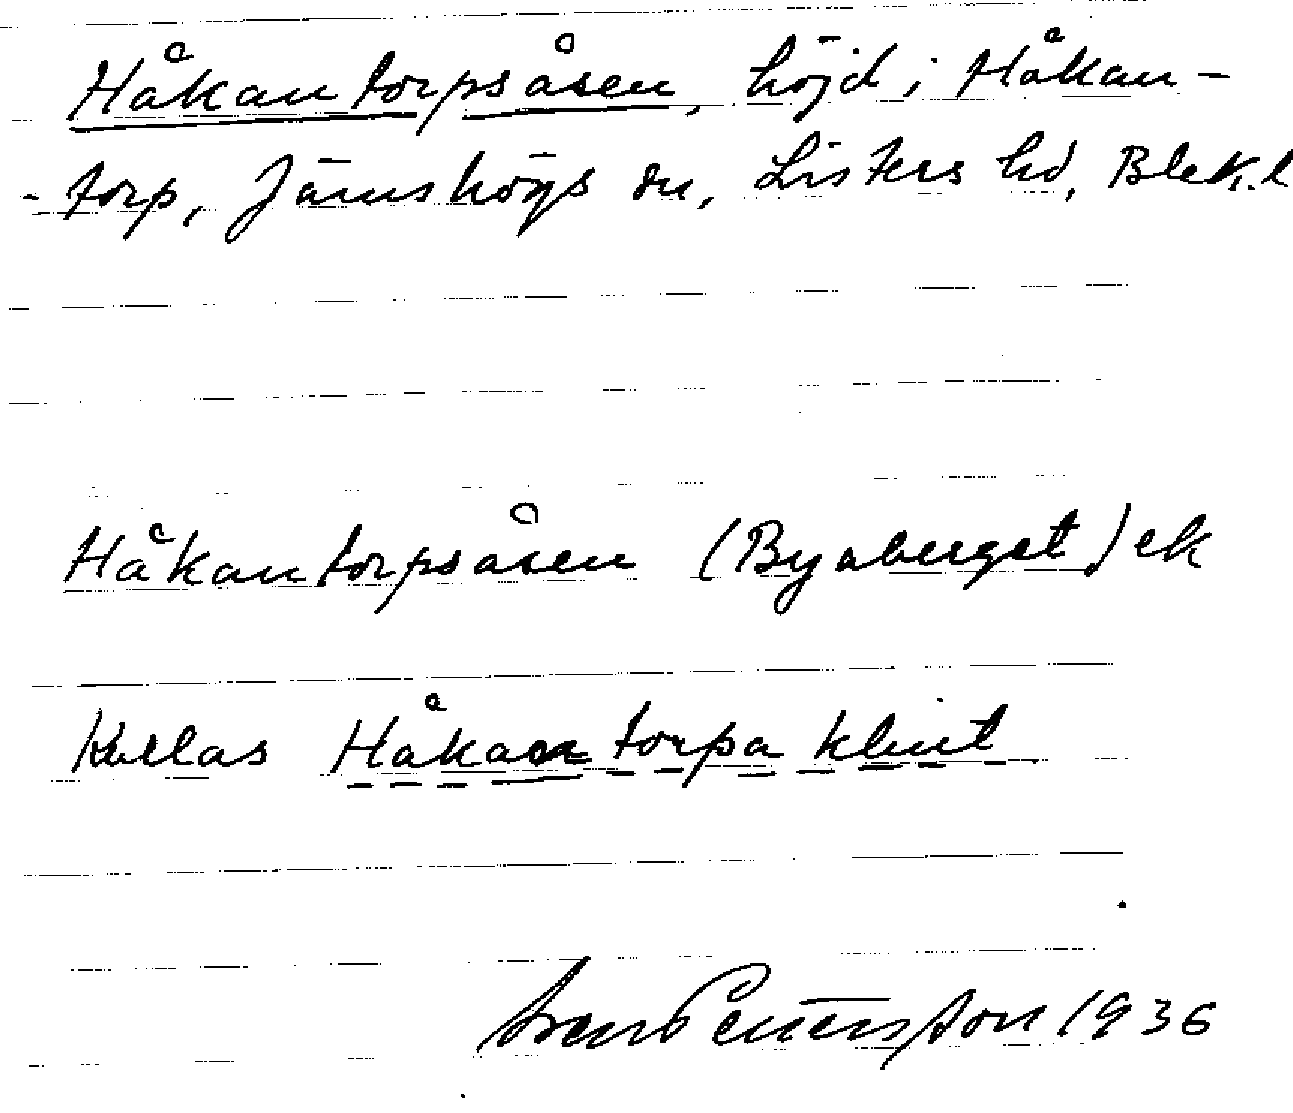 Håkantorpsåsen, höjd i Håkan-
-torp, Jämshögs sn, Listers hd, Blek. l
Håkantorpsåsen (Byaberget) ek
Kallas Håkantorpa klint
Sven Pettersson 1936